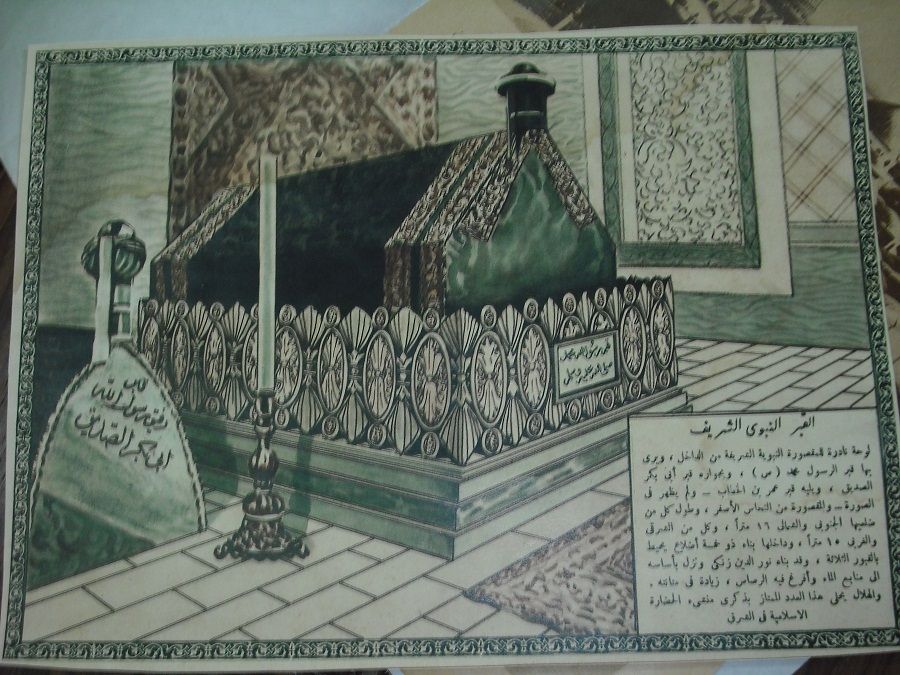 قبر رسول الله محمد
صلى الله عليه وسلم
قبر
رفيق رسول الله
ابى بكر الصديق
القبر النبوى الشريف
لوحة نادرة للمقصورة النبوية الشريفة من الداخل ، ويرى
بها قبر الرسول محمد (ص) ، وبجواره قبر أبى بكر
الصديق ، ويليه قبر عمر بن الخطاب ــ ولم يظهر فى
الصورة ــ والمقصورة من النحاس الأصفر ، وطول كل من
ضلعيها الجنوبى والشمالى ١٦ متراً ، وكل من الشرقى
والغربى ١٥ متراً ، وداخلها بناء ذو خمسة أضلاع يحيط
بالقبور الثلاثة ، وقد بناه نور الدين زنكى ونزل بأساسه
الى منابع الماء وأفرغ فيه الرصاص ، زيادة فى متانته .
والهلال يحلى هذا العدد الممتاز بذكرى منشىء الحضارة
الاسلامية فى الشرق